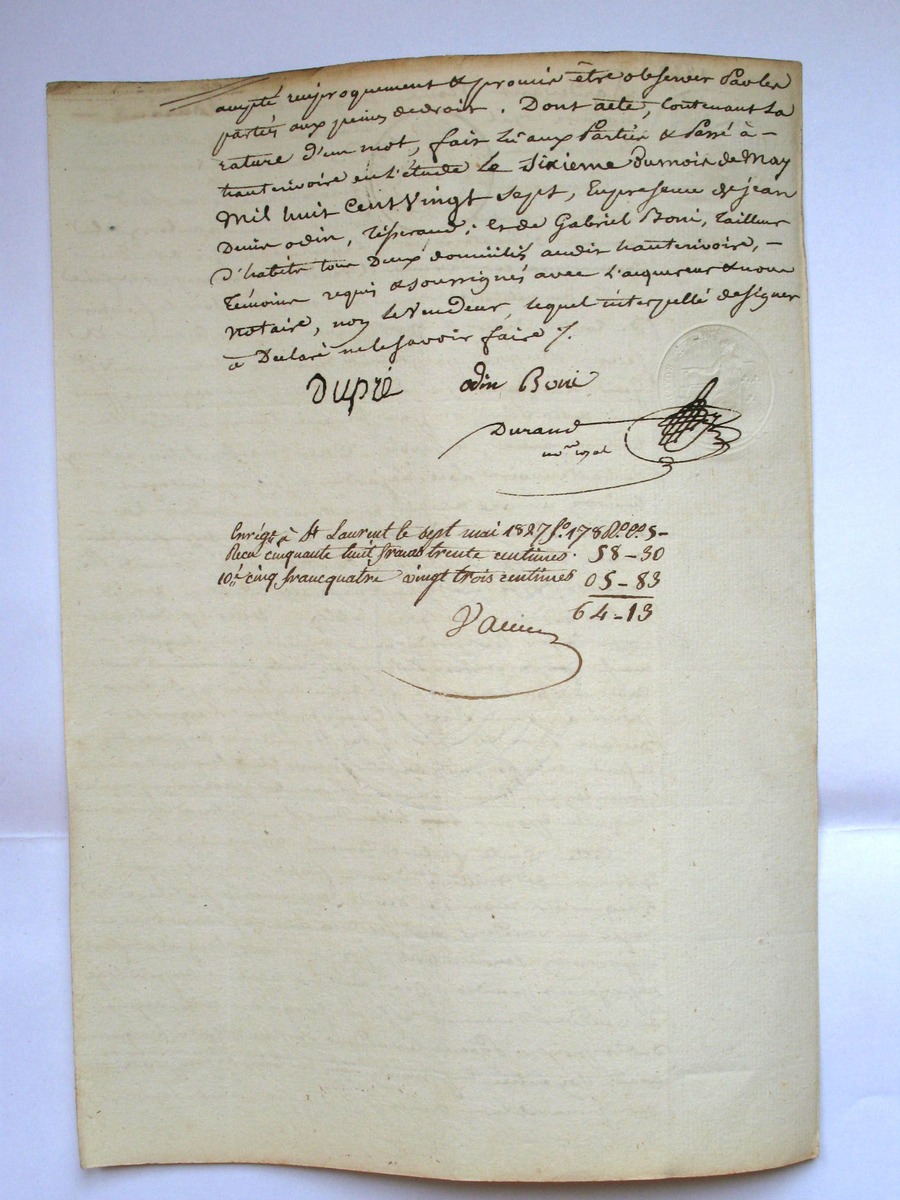 accepté réciproquement & promis être observer Par les
parties aux peines de droit. Dont acte, contenant la
rature d'un mot, fait lu aux Parties & Passé à -
hauterivoire en l'étude le Sixieme Du mois de May
Mil huit Cent Vingt Sept, En presence de jean
odin, tisserand; et de Gabriel Boni, tailleur
D'habits tous Deux domiciliés audit hauterivoire, -
témoins requis & soussignés avec l'acquereur & nous
notaire, non le Vendeur, lequel interpellé de signer
à Declaré ne le savoir faire /.
Dupré odin Boni
Durand
no.re royal
Enrégé à St Laurent le sept mai 1827 fo. 178 Ro. Ce. 5-
Recu cinquante huit francs trente centimes. 58-30
10.e cinq francs quatre vingt trois centimes 05-83
64-13